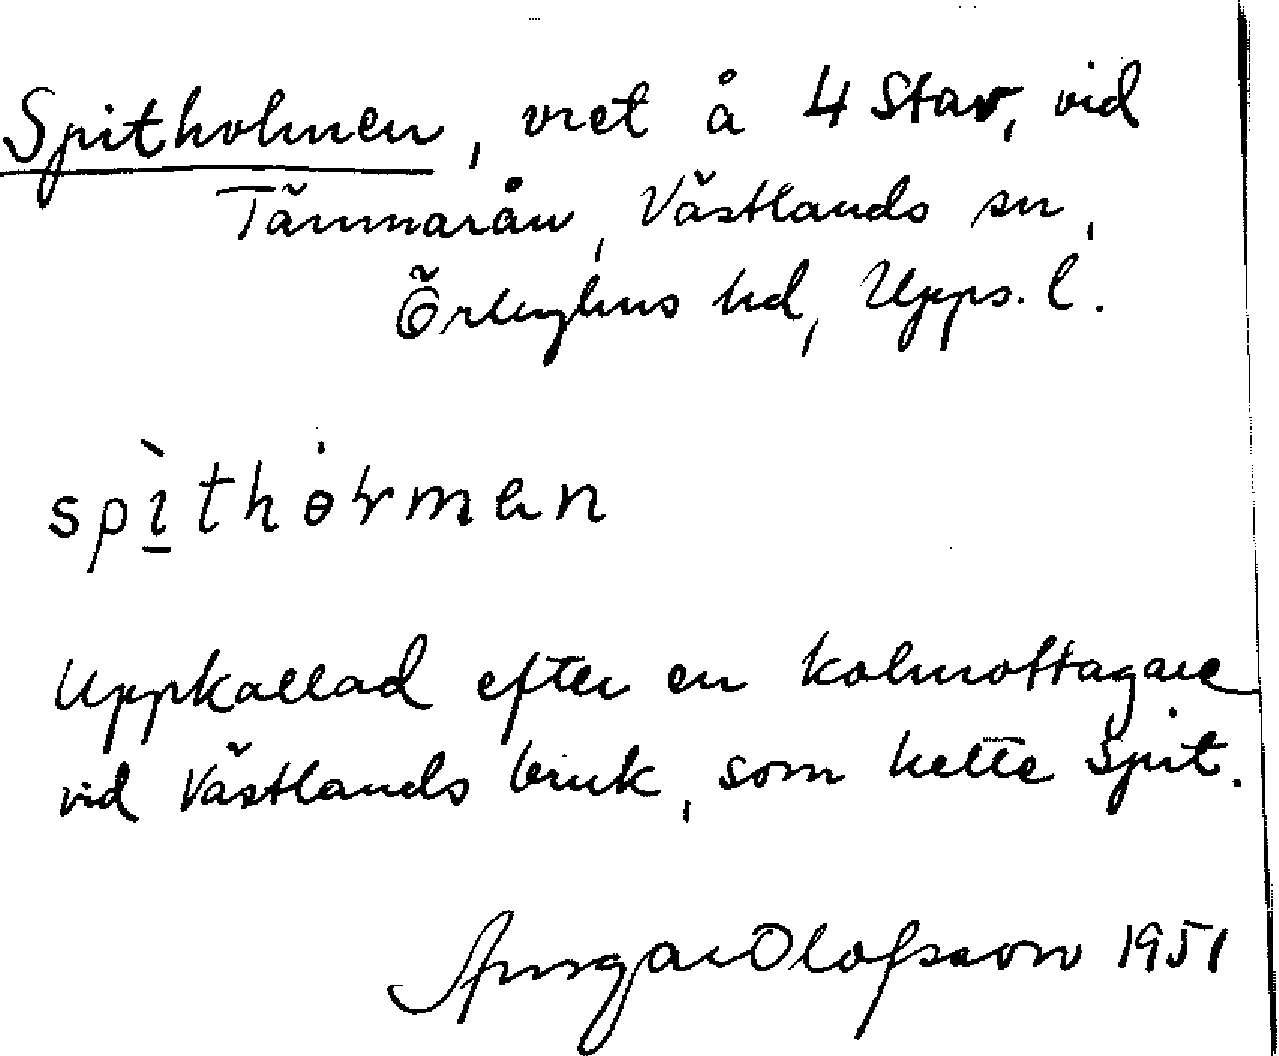 Spitholmen, vret å 4 Stav, vid
Tämnarån, Västlands sn,
Örbyhus hd, Upps. l.
spìthɵrmen
Uppkallad efter en kolmottagare
vid Västlands bruk, som hette Spit.
Ansgar Olofsson 1951